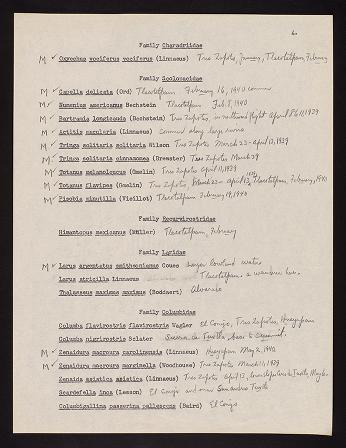 6
Family Charadriidae
M ✓ Oxyechus vociferus vociferus (Linnaeus) Tres Zapotes, January, Tlacotalpam, February
Family Scolopacidae
M ✓ Capella delicata (Ord) Tlacotalpam February 16, 1940 common
M ✓ Numenius americanus Bechstein Tlacotalpam Feb. 8, 1940
M ✓ Bartramia longicauda (Bechstein) Tres Zapotes, in northward flight April 8 & 11, 1939
M ✓ Actitis macularia (Linnaeus) Common along large rivers
M ✓ Tringa solitaria solitaria Wilson Tres Zapotes March 23 - April 13, 1939
M ✓ Tringa solitaria cinnamomea (Brewster) Tres Zapotes March 29
M ✓ Totanus melanoleucus (Gmelin) Tres Zapotes April 11, 1939
M ✓ Totanus flavipes (Gmelin) Tres Zapotes, March 22 - April 13, Tlacotalpam, February, 1940
M ✓ Pisobia minutilla (Vieillot) Tlacotalpam February 19, 1940
Family Recurvirostridae
Himantopus mexicanus (Müller) Tlacotalpam, February
Family Laridae
M ✓ Larus argentatus smithsonianus Coues larger lowland waters
Larus atricilla Linnaeus Tlacotalpam. a wanderer here.
Thalasseus maximus maximus (Boddaert) Alvarado
Family Columbidae
Columba flavirostris flavirostris Wagler El Conejo, Tres Zapotes, Hueyapam
Columba nigrirostris Sclater Sierra de Tuxtla, base to
M ✓ Zenaidura macroura carolinensis (Linnaeus) Hueyapam May 2, 1940
M ✓ Zenaidura macroura marginella (Woodhouse) Tres Zapotes March 11, 1939
Zenaida asiatica asiatica (Linnaeus) Tres Zapotes April 13,
Scardafella inca (Lesson) El Conejo and near San Andres Tuxtla
Columbigallina passerina pallescens (Baird) El Conejo